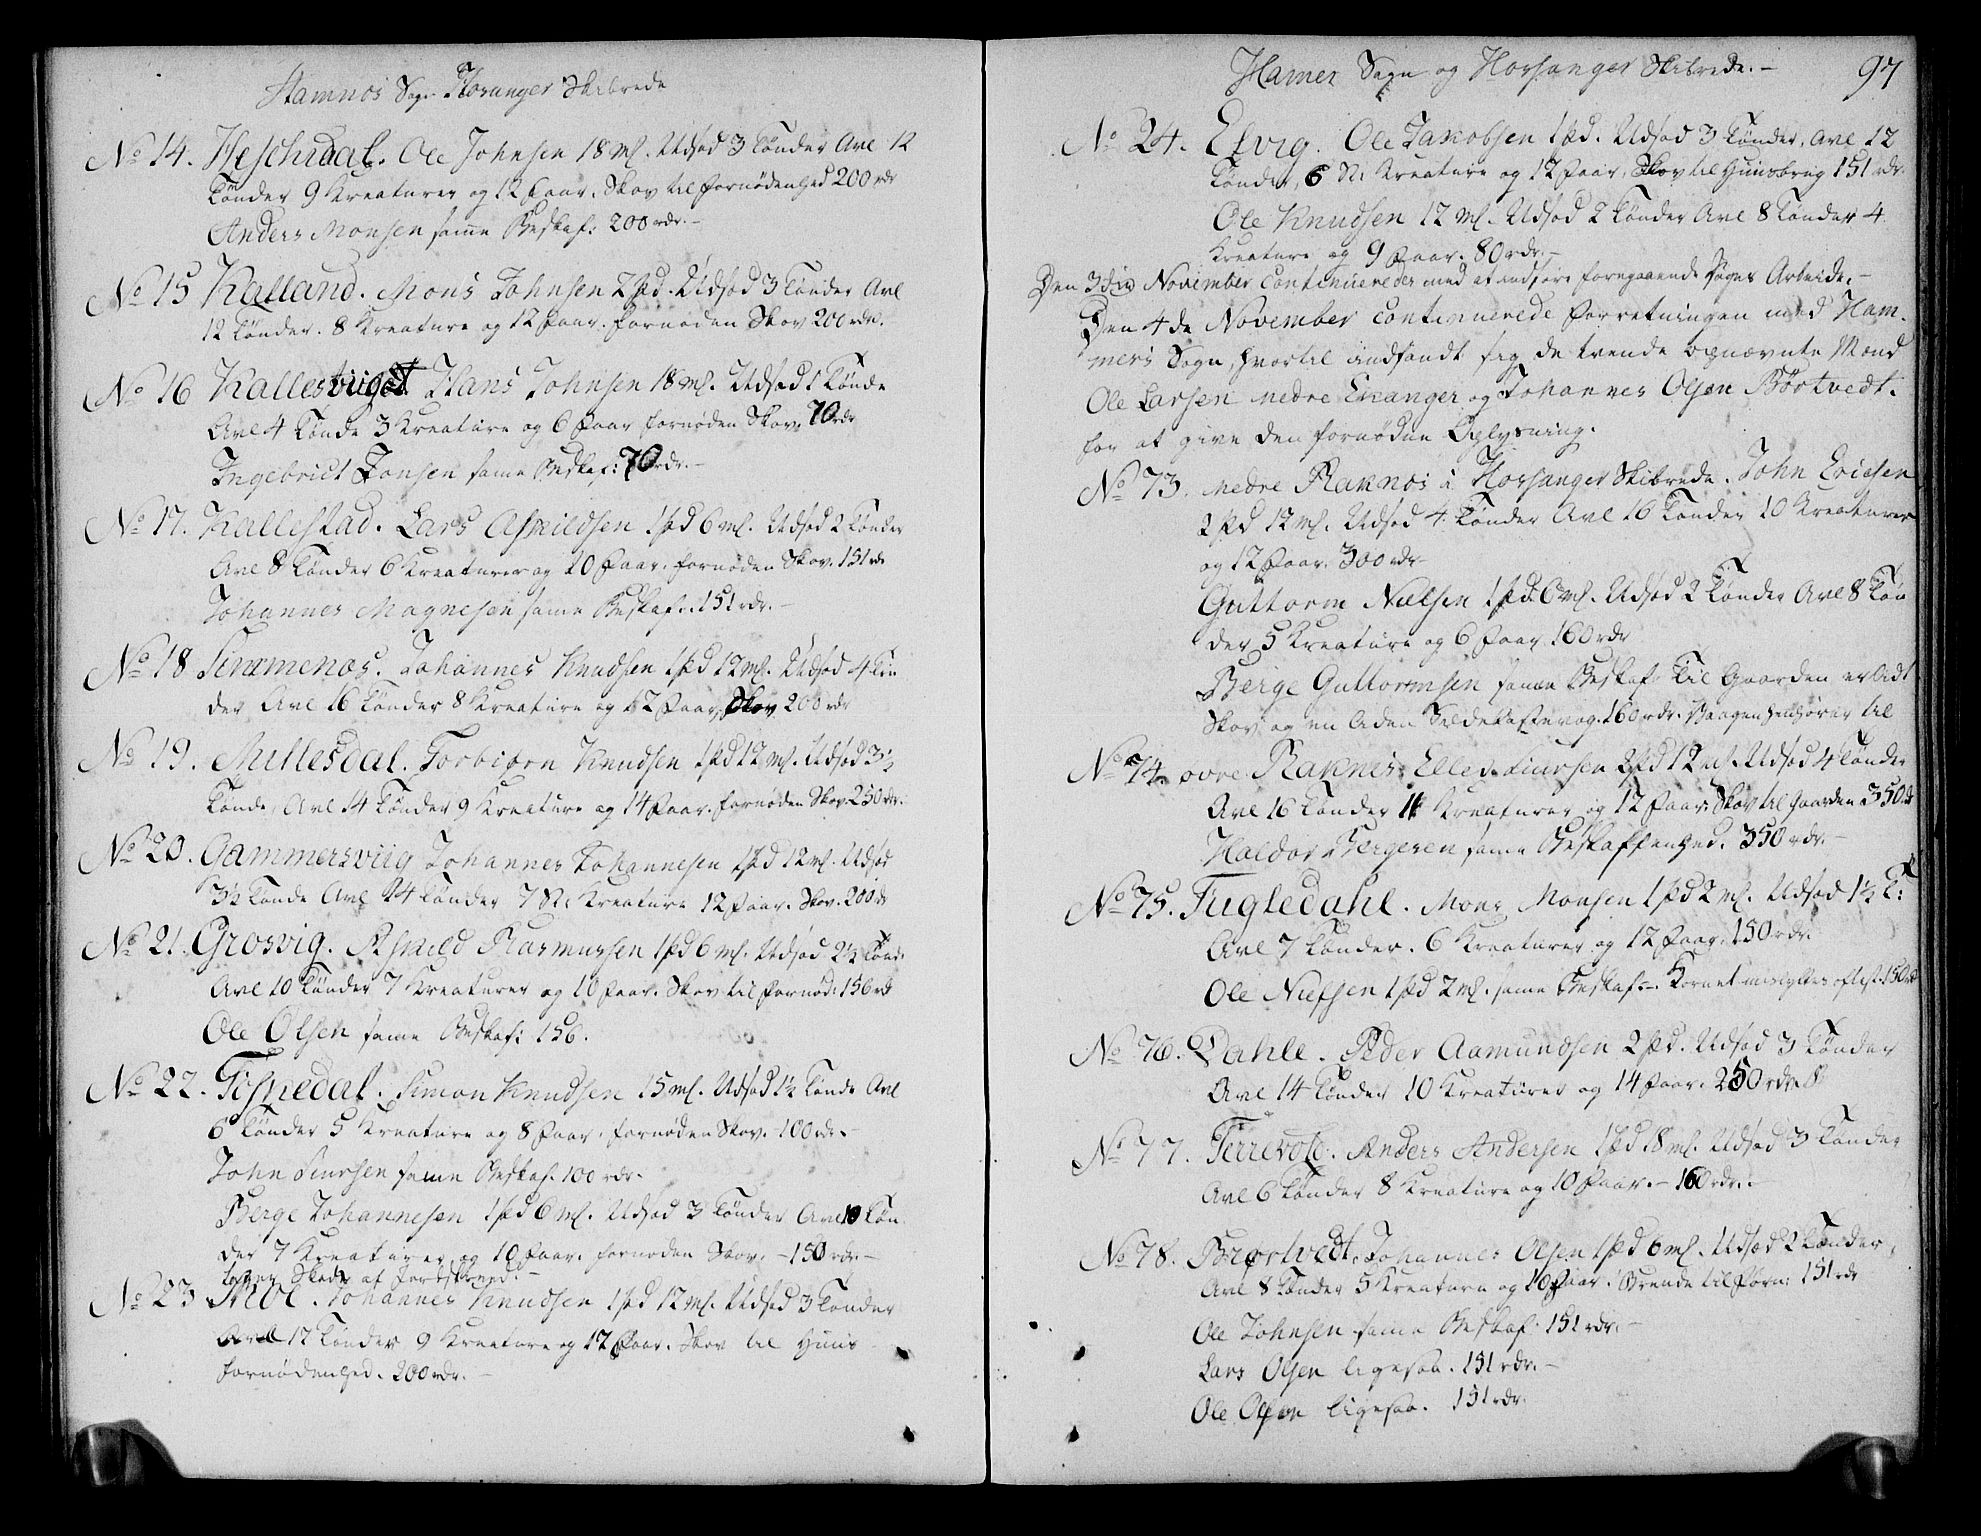 Stamnos Sogn Hosanger Skibrede
No 14. Heschedal. Ole Johnsen 18 ml. Udsæd 3 Tønder Avl 12
Tønder 9 Kreaturer og 12 Faar. Skov til Fornødenhed 200 rdr
Anders Monsen samme Beskaf: 200 rdr. –
No 15 Kalland. Mons Johnsen 2 Pd. Udsæd 3 Tønder Avl
12 Tønder. 8 Kreature og 12 Faar. fornøden Skov 200 rdr.
No 16 Kallestviiget Hans Johnsen 18 ml. Udsæd 1 Tønde
Avl 4 Tønde 3 Kreature og 6 Faar fornøden Skov, 70 rdr
Ingebrict Jonsen same Beskaf: 70 rdr. –
No 17. Kallestad. Lars Asmildsen 1 Pd 6 ml. Udsæd 2 Tønder
Avl 8 Tønder 6 Kreaturer og 10 Faar. fornøden Skov. 151 rdr
Johannes Magnesen same Beskaf: 151 rdr. –
No 18 Simmenæs. Johannes Knudsen 1 Pd 12 ml. Udsæd 4 Tøn
der Avl 16 Tønder 8 Kreature og 12 Faar, Skov 200 rdr
No 19. Millesdal. Torbiørn Knudsen 1 Pd 12 ml. Udsæd 3½
Tønde, Avl 14 Tønder 9 Kreature og 14 Faar. fornøden Skov 250 rdr.
No 20. Gammersviig Johannes Johannesen 1 Pd 12 ml. Udsæd
3½ Tønde Avl 14 Tønder 7 St: Kreature 12 Faar. Skov. 200 rdr
No 21. Grosvig. Asmild Rasmussen 1 Pd 6 ml. Udsæd 2½ Tønde
Avl 10 Tønder 7 Kreaturer og 10 Faar. Skov til Fornød: 156 rdr
Ole Olsen same Beskaf: 156.
No 22. Tosnedal. Simon Knudsen 15 ml. Udsæd 1½ Tønde Avl
6 Tønder 5 Kreature og 8 Faar. fornøden Skov. 100 rdr. –
John Siursen same Beskaf. 100 rdr.
Berge Johannesen 1 Pd 6 ml. Udsæd 3 Tønder Avl 10 Tøn
der 7 Kreaturer og 10 Faar. fornøden Skov. – 150 rdr. –
tager Skade af Jordskreed. –
No 23 Johannes Knudsen 1 Pd 12 ml. Udsæd 3 Tønder
Avl 12 Tønder 9 Kreature og 12 Faar. Skov til Huus
fornødenhed. 200 rdr. –
Hamer Sogn og Hosanger Skibrede. – 97
No 24. Elvig. Ole Jakobsen 1 Pd. Udsæd 3 Tønder, Avl 12
Tønder, 6 St: Kreature og 12 Faar, Skov til Huusbrug 151 rdr.
Ole Knudsen 12 ml. Udsæd 2 Tønder Avl 8 Tønder 4
Kreature og 9 Faar. 80 rdr. –
Den 3die November Continueredes med at indføre foregaaende Dages Arbeide. –
Den 4de November continuerede Forretningen med Ham-
mers Sogn, hvortil indfandt sig de tvende opnævnte Mænd
Ole Larsen nedre Eicanger og Johannes Olsen Børtvedt.
for at give den fornødne Oplysning.
No 73. nedre Raknes i Hosanger Skibrede. John Ericsen
2 Pd 12 ml. Udsæd 4 Tønder Avl 16 Tønder 10 Kreaturer
og 12 Faar. 300 rdr
Guttorm Nielsen 1 Pd 6 ml. Udsæd 2 Tønder Avl 8 Tøn
der 5 Kreature og 6 Faar 160 rdr
Berge Guttormsen same Beskaf Til Gaarden er lidt
Skov og en liden Sildekastevog. 160 rdr. Vaagen henhører til
No 74. ovre Raknes. Elled Siursen 2 Pd 12 ml. Udsæd 4 Tønder
Avl 16 Tønder 11 Kreaturer og 12 Faar. Skov til Gaarden 350 rdr
Haldor Bergesen same Beskaffenhed. 350 rdr. –
No 75. Fugledahl. Mons Monsen 1 Pd 2 ml. Udsæd 1½ T:
Avl 7 Tønder. 6 Kreaturer og 12 Faar. 150 rdr.
Ole Nielsen 1 Pd 2 ml. same Beskaf: –. Kornet misgltes oftest. 150 rdr
No 76. Dahle. Peder Aamundsen 2 Pd. Udsæd 3 Tønder
Avl 14 Tønder 10 Kreaturer og 14 Faar. 250 rdr.
No 77. Terrevold. Anders Andersen 1 Pd 18 ml. Udsæd 3 Tønder
Avl 6 Tønder 8 Kreature og 10 Faar. – 160 rdr. –
No 78. Brørtvedt. Johannes Olsen 1 Pd 6 ml. Udsæd 2 Tønder,
Avl 8 Tønder 5 Kreature og 10 Faar. Brende til Forn: 151 rdr
Ole Johnsen same Beskaf. 151 rdr. –
Lars Olsen ligesaa. 151 rdr. –
Ole Olsen ligesaa. 151 rdr.